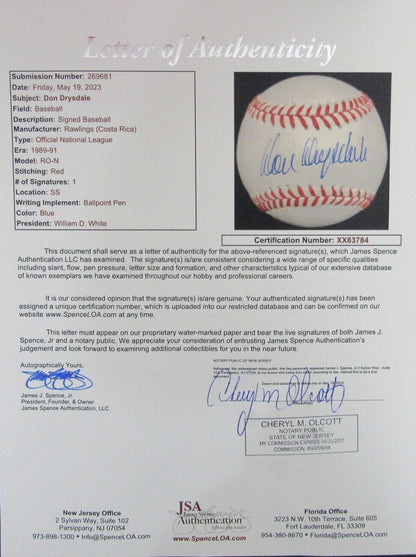 Letter of Authenticity
Submission Number: 269681
Date: Friday, May 19, 2023
Subject: Don Drysdale
Field: Baseball
Description: Signed Baseball
Manufacturer: Rawlings (Costa Rica)
Type: Official National League
Era: 1989-91
Model: RO-N
Stitching: Red
# of Signatures: 1
Location: SS
Writing Implement: Ballpoint Pen
Color: Blue
President: William D. White
Don Drysdale
Certification Number: XX83784
This document shall serve as a letter of authenticity for the above-referenced signature(s), which James Spence
Authentication LLC has examined. The signature(s) is/are consistent considering a wide range of specific qualities
including slant, flow, pen pressure, letter size and formation, and other characteristics typical of our extensive database
of known exemplars we have examined throughout our hobby and professional careers.
It is our considered opinion that the signature(s) is/are genuine. Your authenticated signature(s) has been
assigned a unique certification number, which is uploaded into our restricted database and can be confirmed on
our website www.SpenceLOA.com at any time.
This letter must appear on our proprietary water-marked paper and bear the live signatures of both James J.
Spence, Jr and a notary public. We appreciate your consideration of entrusting James Spence Authentication's
judgement and look forward to examining additional collectibles for you in the near future.
Autographically Yours,
James J. Spence, Jr.
President, Founder, & Owner
James Spence Authentication, LLC
NOTARY PUBLIC OF NEW JERSEY
Cheryl M Olcott
CHERYL M. OLCOTT
NOTARY PUBLIC
STATE OF NEW JERSEY
MY COMMISSION EXPIRES 04/25/2027
New Jersey Office
2 Sylvan Way, Suite 102
Parsippany, NJ 07054
973-898-1300 • Info@SpenceLOA.com
JSA
James Spence
Authentication
www.SpenceLOA.com
Florida Office
3223 N.W. 10th Terrace, Suite 605
Fort Lauderdale, FL 33309
954-380-8670 • Florida@SpenceLOA.com